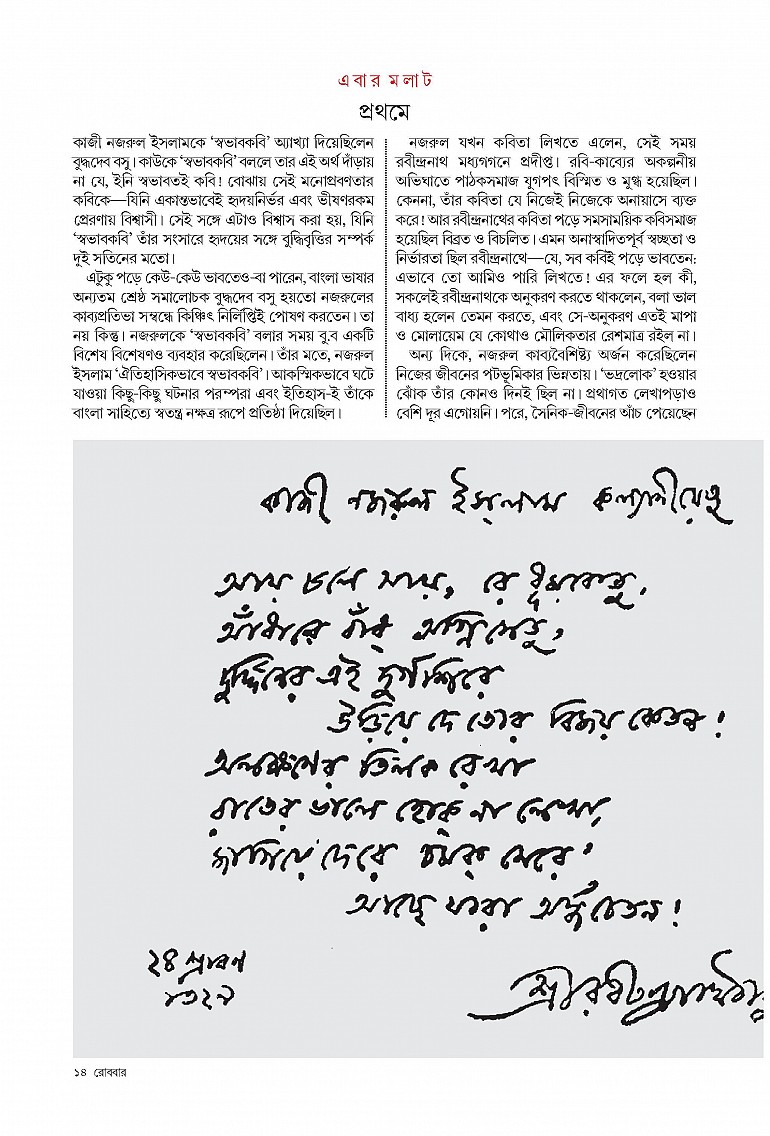 এবার মলাট
প্রথমে
কাজী নজরুল ইসলামকে ‘স্বভাবকবি’ অ্যাখ্যা দিয়েছিলেন
বুদ্ধদেব বসু। কাউকে ‘স্বভাবকবি’ বললে তার এই অর্থ দাঁড়ায়
না যে, ইনি স্বভাবতই কবি! বোঝায় সেই মনোপ্রবণতার
কবিকে—যিনি একান্তভাবেই হৃদয়নির্ভর এবং ভীষণরকম
প্রেরণায় বিশ্বাসী। সেই সঙ্গে এটাও বিশ্বাস করা হয়, যিনি
‘স্বভাবকবি’ তাঁর সংসারে হৃদয়ের সঙ্গে বুদ্ধিবৃত্তির সম্পর্ক
দুই সতিনের মতো।
এটুকু পড়ে কেউ-কেউ ভাবতেও-বা পারেন, বাংলা ভাষার
অন্যতম শ্রেষ্ঠ সমালোচক বুদ্ধদেব বসু হয়তো নজরুলের
কাব্যপ্রতিভা সম্বন্ধে কিঞ্চিৎ নির্লিপ্তিই পোষণ করতেন। তা
নয় কিন্তু। নজরুলকে ‘স্বভাবকবি’ বলার সময় বু.ব একটি
বিশেষ বিশেষণও ব্যবহার করেছিলেন। তাঁর মতে, নজরুল
ইসলাম ‘ঐতিহাসিকভাবে স্বভাবকবি’। আকস্মিকভাবে ঘটে
যাওয়া কিছু-কিছু ঘটনার পরম্পরা এবং ইতিহাস-ই তাঁকে
বাংলা সাহিত্যে স্বতন্ত্র নক্ষত্র রূপে প্রতিষ্ঠা দিয়েছিল।
নজরুল যখন কবিতা লিখতে এলেন, সেই সময়
রবীন্দ্রনাথ মধ্যগগনে প্রদীপ্ত। রবি-কাব্যের অকল্পনীয়
অভিঘাতে পাঠকসমাজ যুগপৎ বিস্মিত ও মুগ্ধ হয়েছিল।
কেননা, তাঁর কবিতা যে নিজেই নিজেকে অনায়াসে ব্যক্ত
করে! আর রবীন্দ্রনাথের কবিতা পড়ে সমসাময়িক কবিসমাজ
হয়েছিল বিব্রত ও বিচলিত। এমন অনাস্বাদিতপূর্ব স্বচ্ছতা ও
নির্ভারতা ছিল রবীন্দ্রনাথে—যে, সব কবিই পড়ে ভাবতেন:
এভাবে তো আমিও পারি লিখতে! এর ফলে হল কী,
সকলেই রবীন্দ্রনাথকে অনুকরণ করতে থাকলেন, বলা ভাল
বাধ্য হলেন তেমন করতে, এবং সে-অনুকরণ এতই মাপা
ও মোলায়েম যে কোথাও মৌলিকতার রেশমাত্র রইল না।
অন্য দিকে, নজরুল কাব্যবৈশিষ্ট্য অর্জন করেছিলেন
নিজের জীবনের পটভূমিকার ভিন্নতায়। ‘ভদ্রলোক’ হওয়ার
ঝোঁক তাঁর কোনও দিনই ছিল না। প্রথাগত লেখাপড়াও
বেশি দূর এগোয়নি। পরে, সৈনিক-জীবনের আঁচ পেয়েছেন
কাজী নজরুল ইসলাম কল্যাণীয়েষু
আয় চলে আয়, রে ধূমকেতু,
আঁধারে বাঁধ্ অগ্নিসেতু,
দুর্দ্দিনের এই দুর্গশিরে
উড়িয়ে দে তোর বিজয় কেতন!
অলক্ষণের তিলক রেখা
রাতের ভালে হোক্ না লেখা,
জাগিয়ে দেরে চমক্ মেরে'
আছে যারা অর্দ্ধচেতন!
২৪ শ্রাবণ
১৩২৯
শ্রীরবীন্দ্রনাথ ঠাকুর
১৪ রোববার